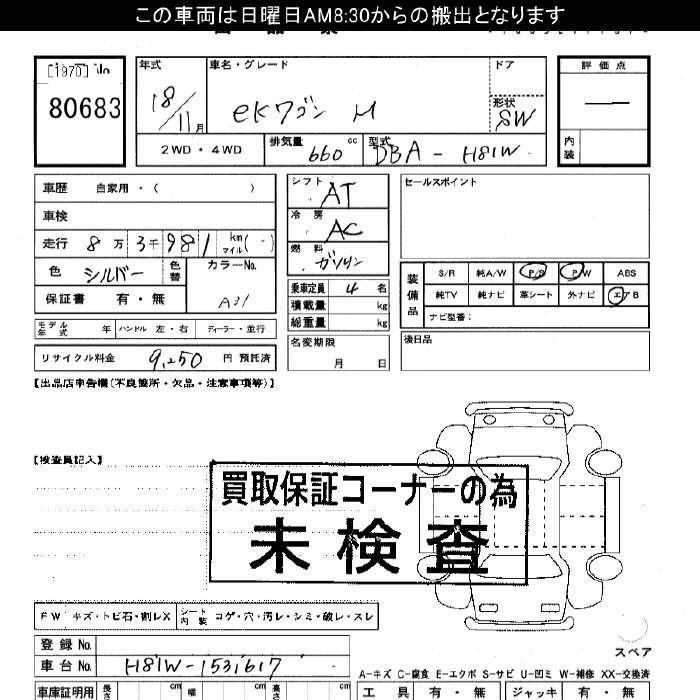 この車両は日曜日AM8:30からの搬出となります
[1970] No
80683
年式 18/11月
車名・グレード eKワゴン M
ドア
形状 SW
評価点
内装
2WD・4WD 排気量 660 cc 型式 DBA-H81W
車歴 自家用・( )
車検
走行 8万3千981 km マイル(-)
色 シルバー 色替 カラーNo. A31
保証書 有・無
シフト AT
冷房 AC
燃料 ガソリン
乗車定員 4 名
積載量 kg
総重量 kg
セールスポイント
装備品 S/R 純A/W P/S P/W ABS
純TV 純ナビ 革シート 外ナビ エアB
ナビ型番:
モデル年式 年 ハンドル 左・右 ディーラー・並行
名変期限
月 日
後日品
リサイクル料金 9,250 円 預託済
【出品店申告欄(不良箇所・欠品・注意事項等)】
【検査員記入】
買取保証コーナーの為
未検査
FW キズ・トビ石・割レX シート内装 コゲ・穴・汚レ・シミ・破レ・スレ
登録No.
車台No. H81W-1531617
スペア
A-キズ C-腐食 E-エクボ S-サビ U-凹ミ W-補修 XX-交換済
車庫証明用 長さ cm 幅 cm 高さ cm
工具 有・無 ジャッキ 有・無